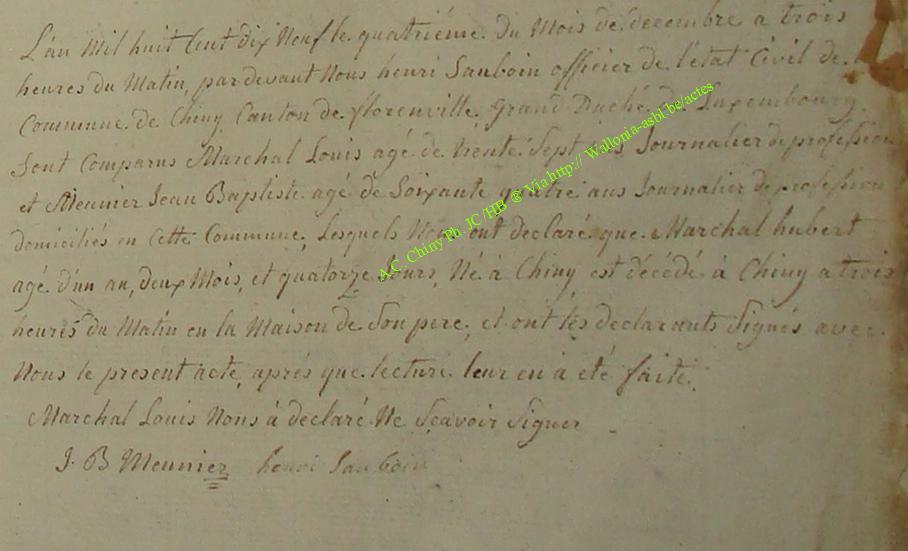 L'an Mil huit Cent dix Neuf le quatriéme du Mois de decembre a trois
heures du Matin, pardevant Nous henri Sauboin officier de l'état Civil de
Commune de Chiny Canton de florenville Grand Duché de Luxembourg
Sont Comparus Marchal Louis agé de trente Sept ans Journalier de profession
et Meunier Jean Baptiste agé de Soixante quatre ans Journalier de profession
domiciliés en Cette Commune, Lesquels Nous ont declaré que Marchal hubert
agé d'un an, deux Mois, et quatorze Jours, Né à Chiny est décédé à Chiny a trois
heures du Matin en la Maison de Son pere, et ont les declarants Signés avec
Nous le present acte, aprés que lecture leur en à été faite.
Marchal Louis Nous à declaré Ne Sçavoir Signer
J. B Meunier henri Sauboin
A.C. Chiny Ph. JC /HB @ Via http:// Wallonia-asbl.be/actes